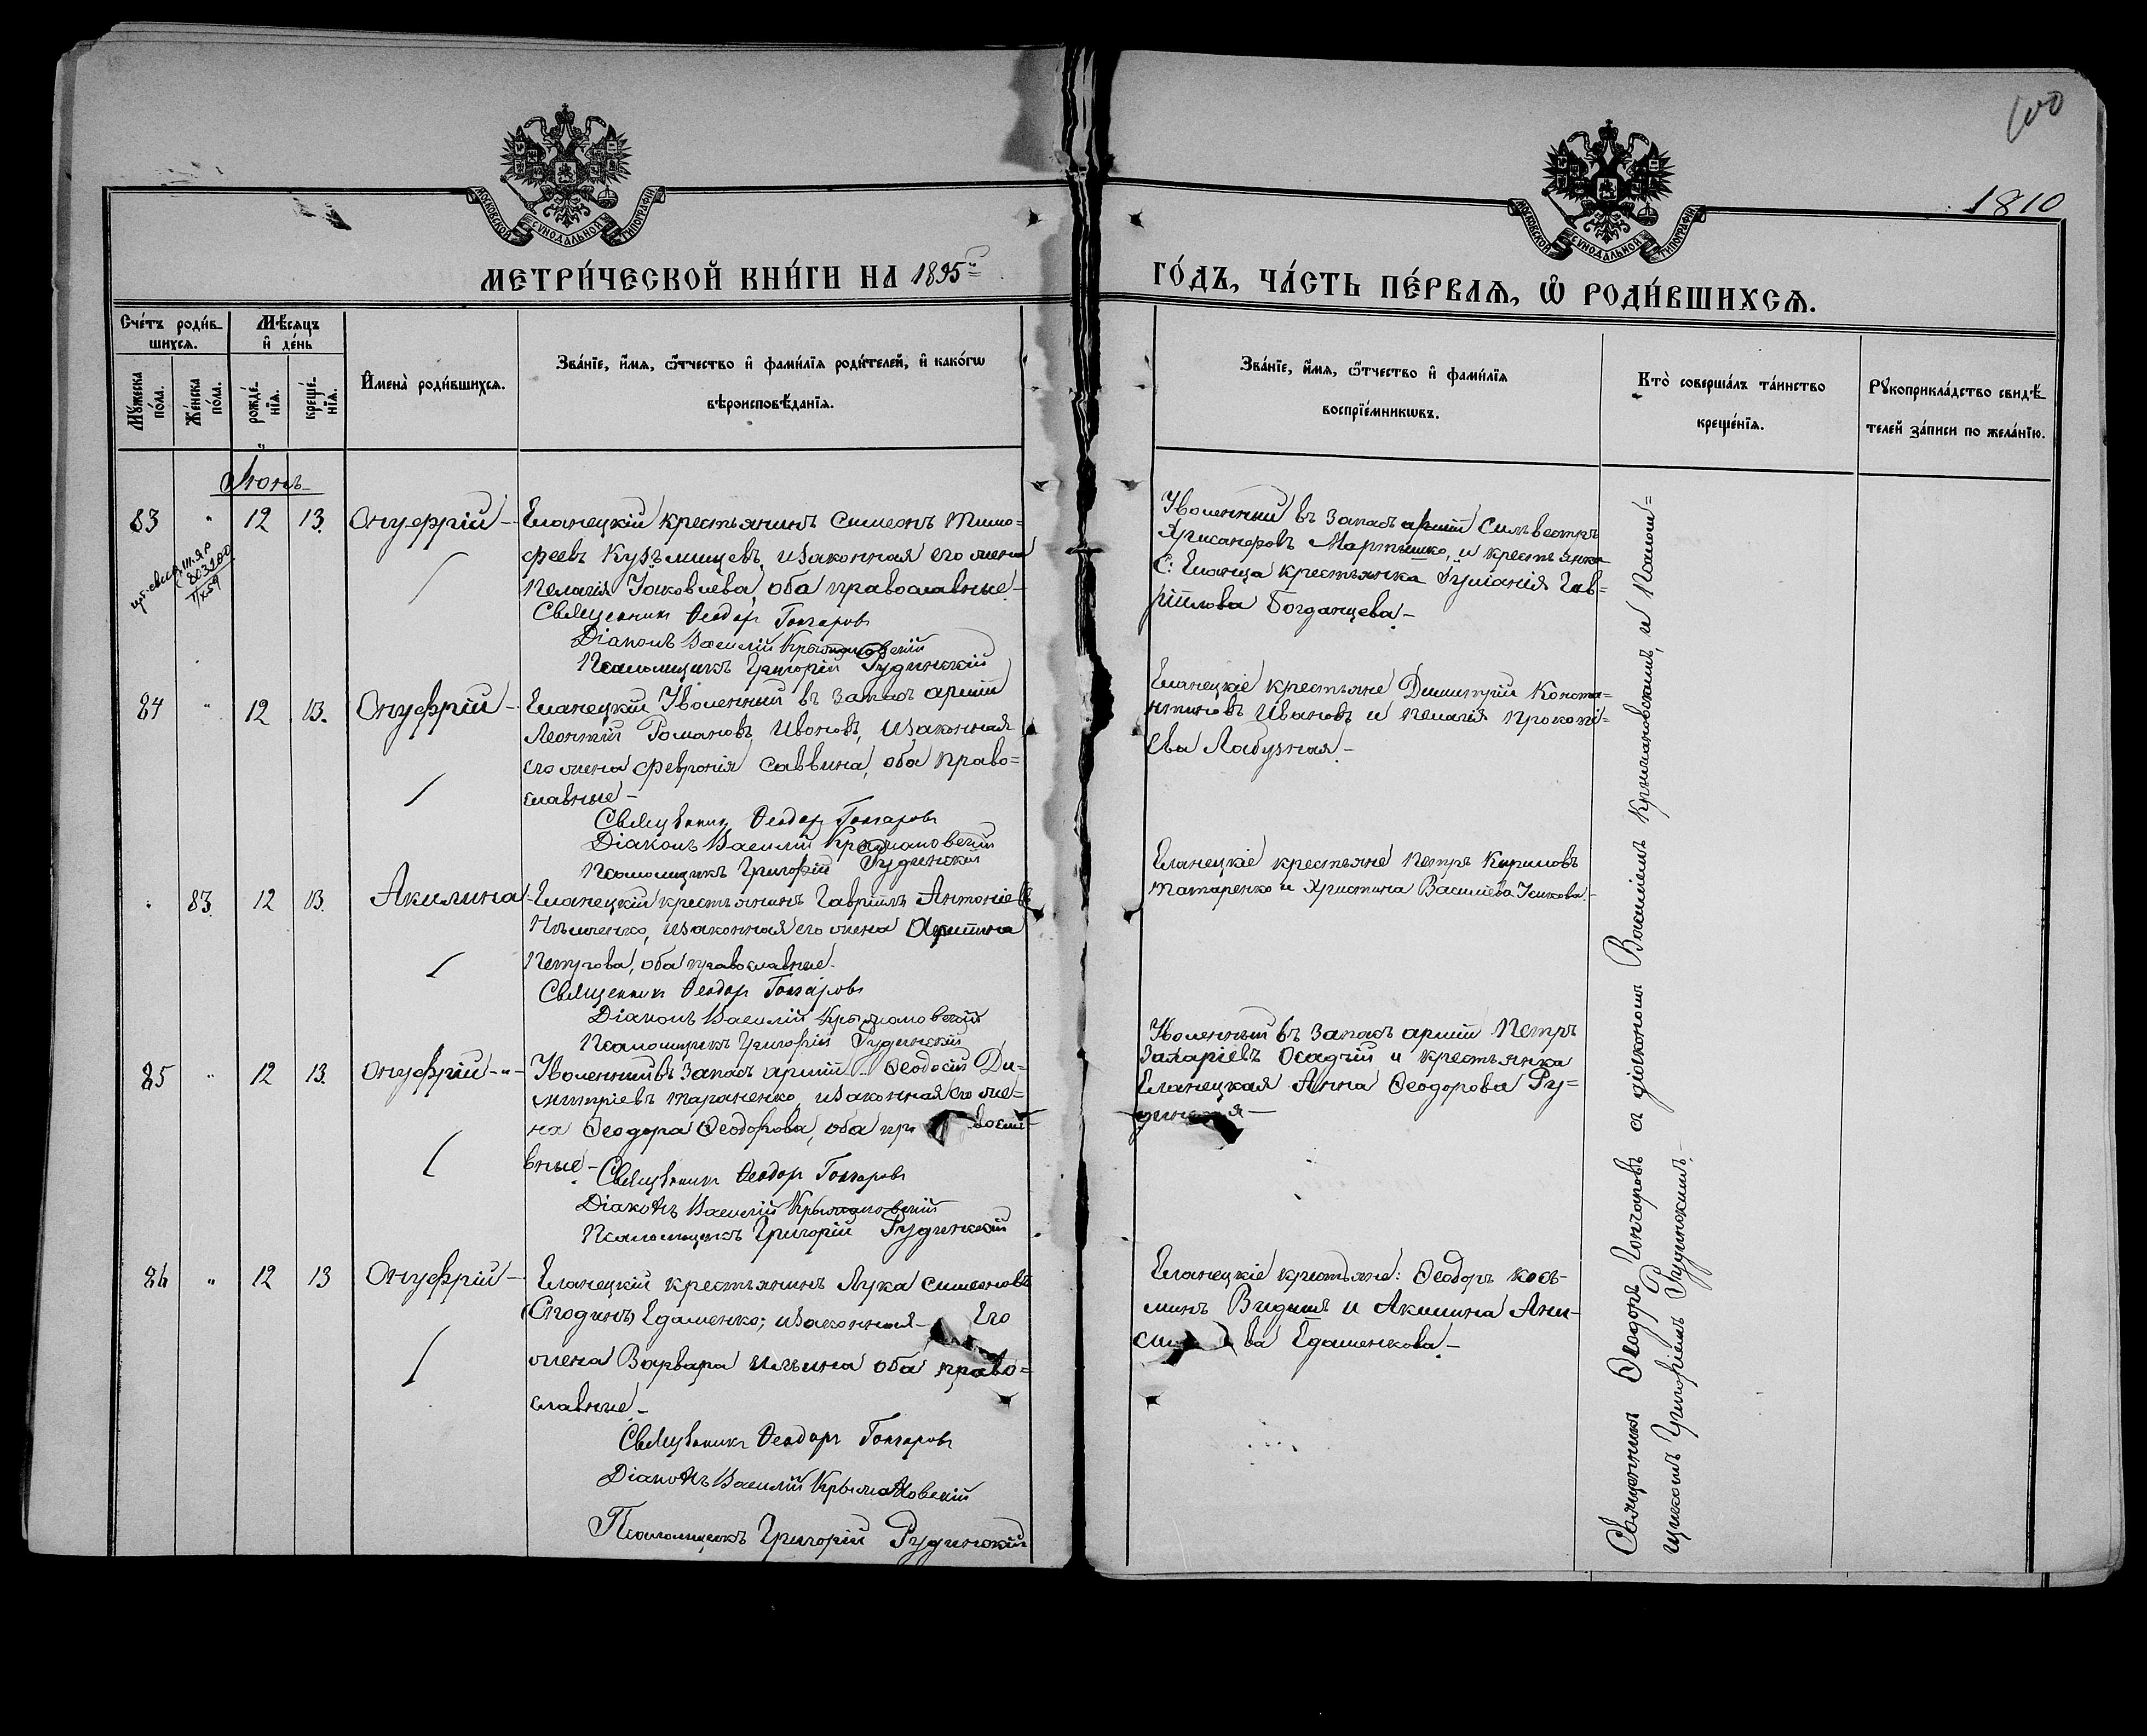 100
1810
МОСКОВСКОЙ СѴНОДАЛЬНОЙ ТИПОГРАФІИ
МОСКОВСКОЙ СѴНОДАЛЬНОЙ ТИПОГРАФІИ
МЕТРИ́ЧЕСКОЙ КНИ́ГИ НА 1895й
ГО́ДЪ, ЧА́СТЬ ПЕ́РВАѦ, Ѡ҆ РОДИ́ВШИХСѦ.
Сче́тъ роди́в-
шихсѧ.
Мꙋ́жеска по́ла.
Же́нска по́ла.
Мѣ́сѧцъ
и҆ де́нь
рожде́нїѧ.
креще́нїѧ.
И҆мена̀ роди́вшихсѧ.
Зва́нїе, и҆́мѧ, ѻ҆́тчество и҆ фами́лїѧ роди́телей, и҆ како́гѡ
вѣроисповѣ́данїѧ.
Зва́нїе, и҆́мѧ, ѻ҆́тчество и҆ фами́лїѧ
воспрїе́мникѡвъ.
Кто̀ соверша́лъ та́инство
креще́нїѧ.
Рꙋкоприкла́дство свидѣ́-
телей за́писи по жела́нїю.
Іюнь
83 " 12 13. Онуфрій - Еланецкій крестьянинъ Симеонъ Тимо=
феевъ Кузьмищевъ, и законная его жена
Пелагія Іаковлева, оба православные -
Священник Ѳеодор Гончаровъ
Діаконъ Василій Крыжановскій
Псаломщикъ Григорій Рудинскій
Уволенный въ запасъ арміи Сильвестръ
Хрисанфовъ Мартышко, и крестьянка
С: Еланца крестьянка Іуліанія Гав=
ріилова Богданцева -
84 " 12 13. Онуфрій - Еланецкій Уволенный въ запасъ арміи
Леонтій Романовъ Ивановъ, и законная
его жена Февронія Саввина, оба право=
славные -
Священник Ѳеодор Гончаровъ
Діаконъ Василій Крыжановскій
Псаломщикъ Григорій Рудинскій
Еланецкіе крестьяне Димитрій Конста=
нтиновъ Ивановъ и Пелагія Прокопі=
ева Лабузная -
" 83 12 13. Акилина - Еланецкій крестьянинъ Гавріилъ Антоніевъ
и законная его жена
Петрова, оба православные.
Священник Ѳеодор Гончаровъ
Діаконъ Василій Крыжановскій
Псаломщикъ Григорій Рудинскій
Еланецкіе крестьяне Петръ Кириловъ
Татаренко и Христина Василіева -
85 " 12 13. Онуфрій - " - Уволенный въ запасъ арміи Ѳеодосій Ди=
митріевъ Тараненко, и законная его же=
на Ѳеодора Ѳеодорова, оба пр восла=
вные -
Священник Ѳеодор Гончаровъ
Діаконъ Василій Крыжановскій
Псаломщикъ Григорій Рудинскій
Уволенный въ запасъ арміи Петръ
Захаріевъ Осадчій и крестьянка
Еланецкая Анна Ѳеодорова Ру=
86 " 12 13 Онуфрій - Еланецкій крестьянинъ Лука Симеоновъ
Едаменко; и законная - Его
жена Варвара Ильина оба право=
славные -
Священник Ѳеодоръ Гончаровъ
Діаконъ Василій Крыжановскій
Псаломщикъ Григорій Рудинскій
Еланецкіе крестьяне: Ѳеодоръ Кось-
минъ и Акилина Ани-
ва Едаменкова -
Священникъ Ѳеодоръ Гончаровъ съ діакономъ Василіемъ Крыжановскимъ, и Псалом=
щикомъ Григоріемъ Рудинскимъ -